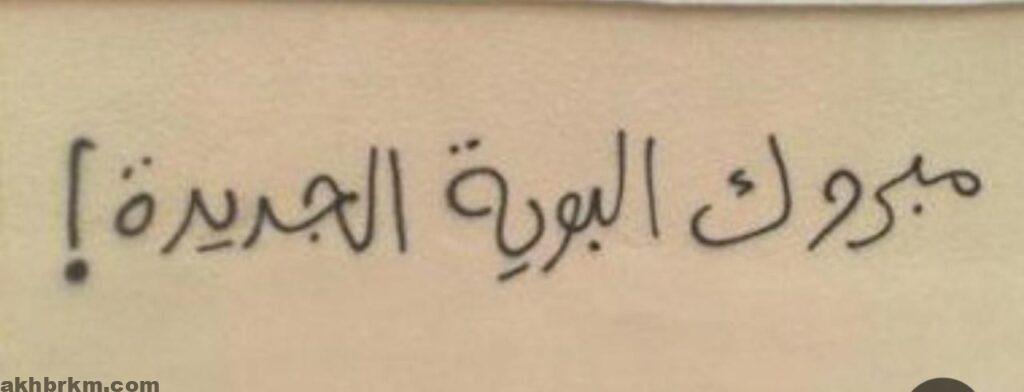 مبروك البوية الجديدة!
akhbrkm.com